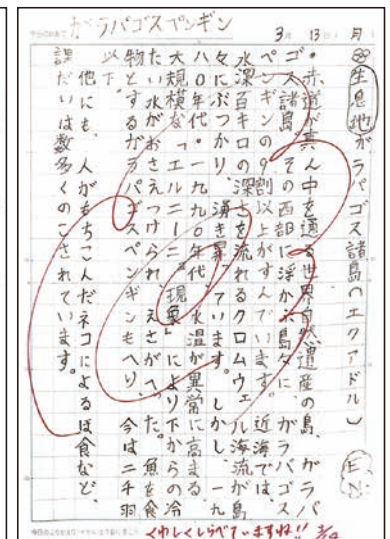 ガラパゴスペンギン
3月 13日(月)
生息地 ガラパゴス諸島(エクアドル)
EN
・赤道が真ん中を通る世界自然遺産の島、ガラパ
ゴス諸島。その西部に浮かぶ島々に、ガラパゴス
ペンギンの9割以上がすんでいます。近海では、
水深百キロの深さを流れるクロムウェル海流が島
々にぶつかり、湧き昇っています。しかし、一九
八〇年代、一九九〇年代、水温が異常に高まる
大規模な「エルニーニョ現象」により下からの冷
たい水がおさえつけられ、えさがへった。魚を食
物とするガラパゴスペンギンもへり、今は二千羽
以下。
他にも、人がもちこんだネコによるほ食など、
課だいは数多くのこされています。
くわしくしらべていますね!!